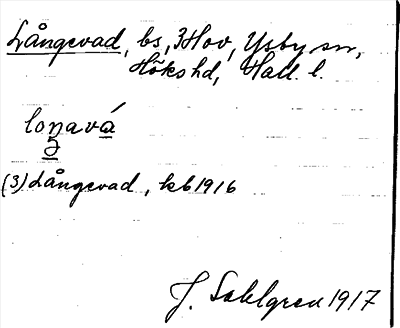 Långevad, bs, 3 Hov, Ysby sn,
Hökshd, Hall. l.
loŋavá
(3) Långevad, kb 1916
J. Sahlgren 1917